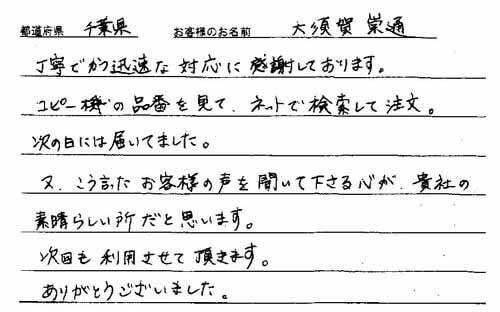 都道府県 千葉県 お客様のお名前 大須賀 崇通
丁寧でかつ迅速な対応に感謝しております。
コピー機の品番を見て、ネットで検索して注文。
次の日には届いてました。
又、こう言ったお客様の声を聞いて下さる心が、貴社の
素晴らしい所だと思います。
次回も利用させて頂きます。
ありがとうございました。